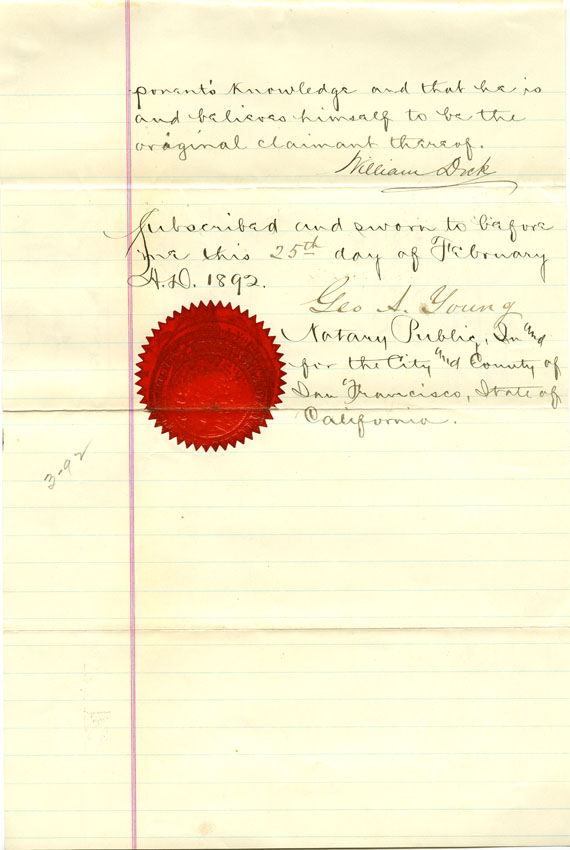 ponent's knowledge and that he is
and believes himself to be the
original claimant thereof.
William Dick
Subscribed and sworn to before
me this 25th day of February
A.D. 1892.
Geo S. Young
Notary Public, In and
for the City and County of
San Francisco, State of
California.
3-92